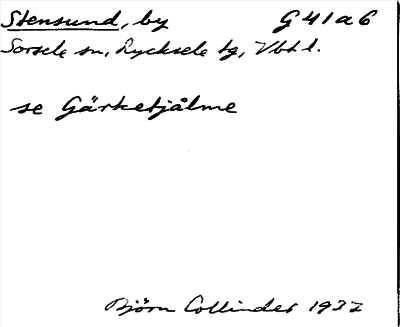 Stensund, by G 41 a 6
Sorsele sn, Lycksele tg, Vbtl.
se Gärketjålme
Björn Collinder 1937